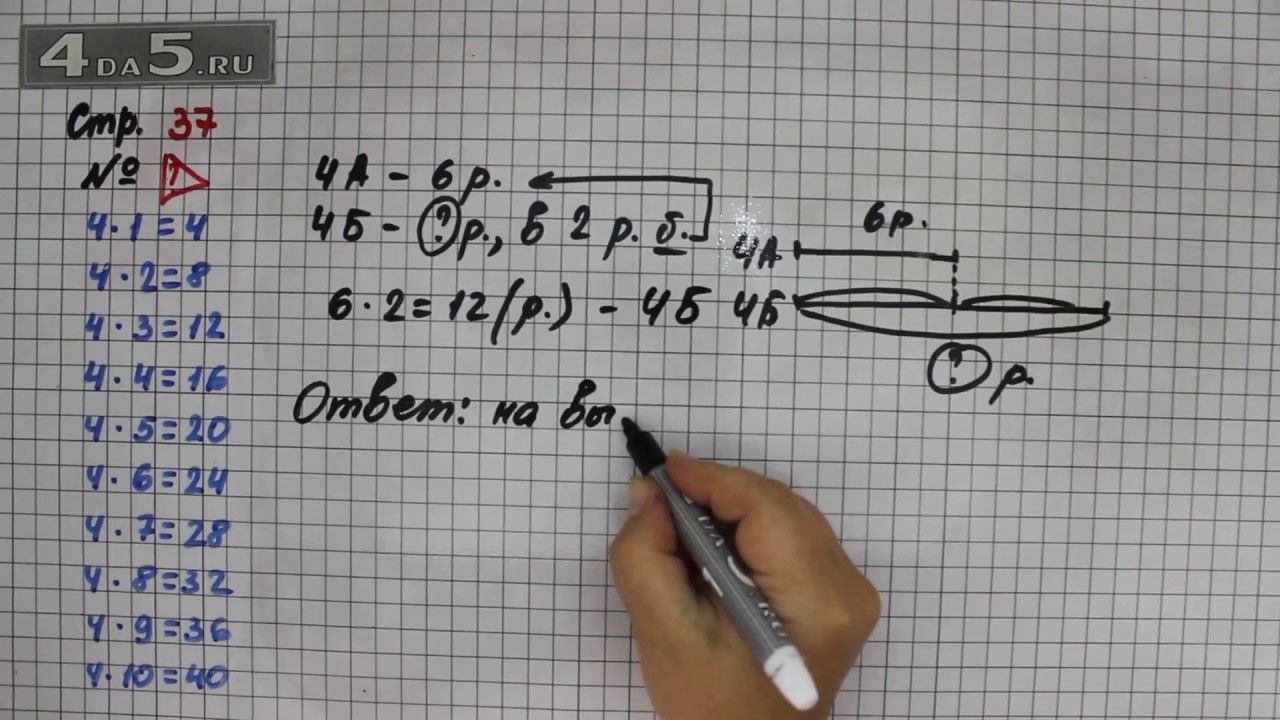 4DA5.RU
Стр. 37
№ ?
4·1=4
4·2=8
4·3=12
4·4=16
4·5=20
4·6=24
4·7=28
4·8=32
4·9=36
4·10=40
4А - 6 р.
4Б - ? р., в 2 р. б.
6·2=12 (р.) - 4Б
Ответ: на вы
6р.
4А
4Б
? р.